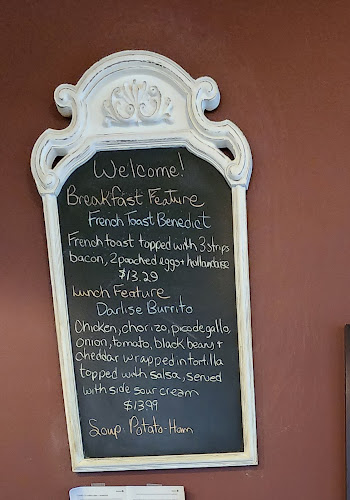 Welcome!
Breakfast Feature
French Toast Benedict
French toast topped with 3 strips
bacon, 2 poached eggs + hollandaise
$13.29
Lunch Feature
Darlise Burrito
Chicken, chorizo, pico de gallo,
onion, tomato, black beans +
cheddar wrapped in tortilla
topped with salsa, served
with side sour cream
$13.99
Soup: Potato-Ham